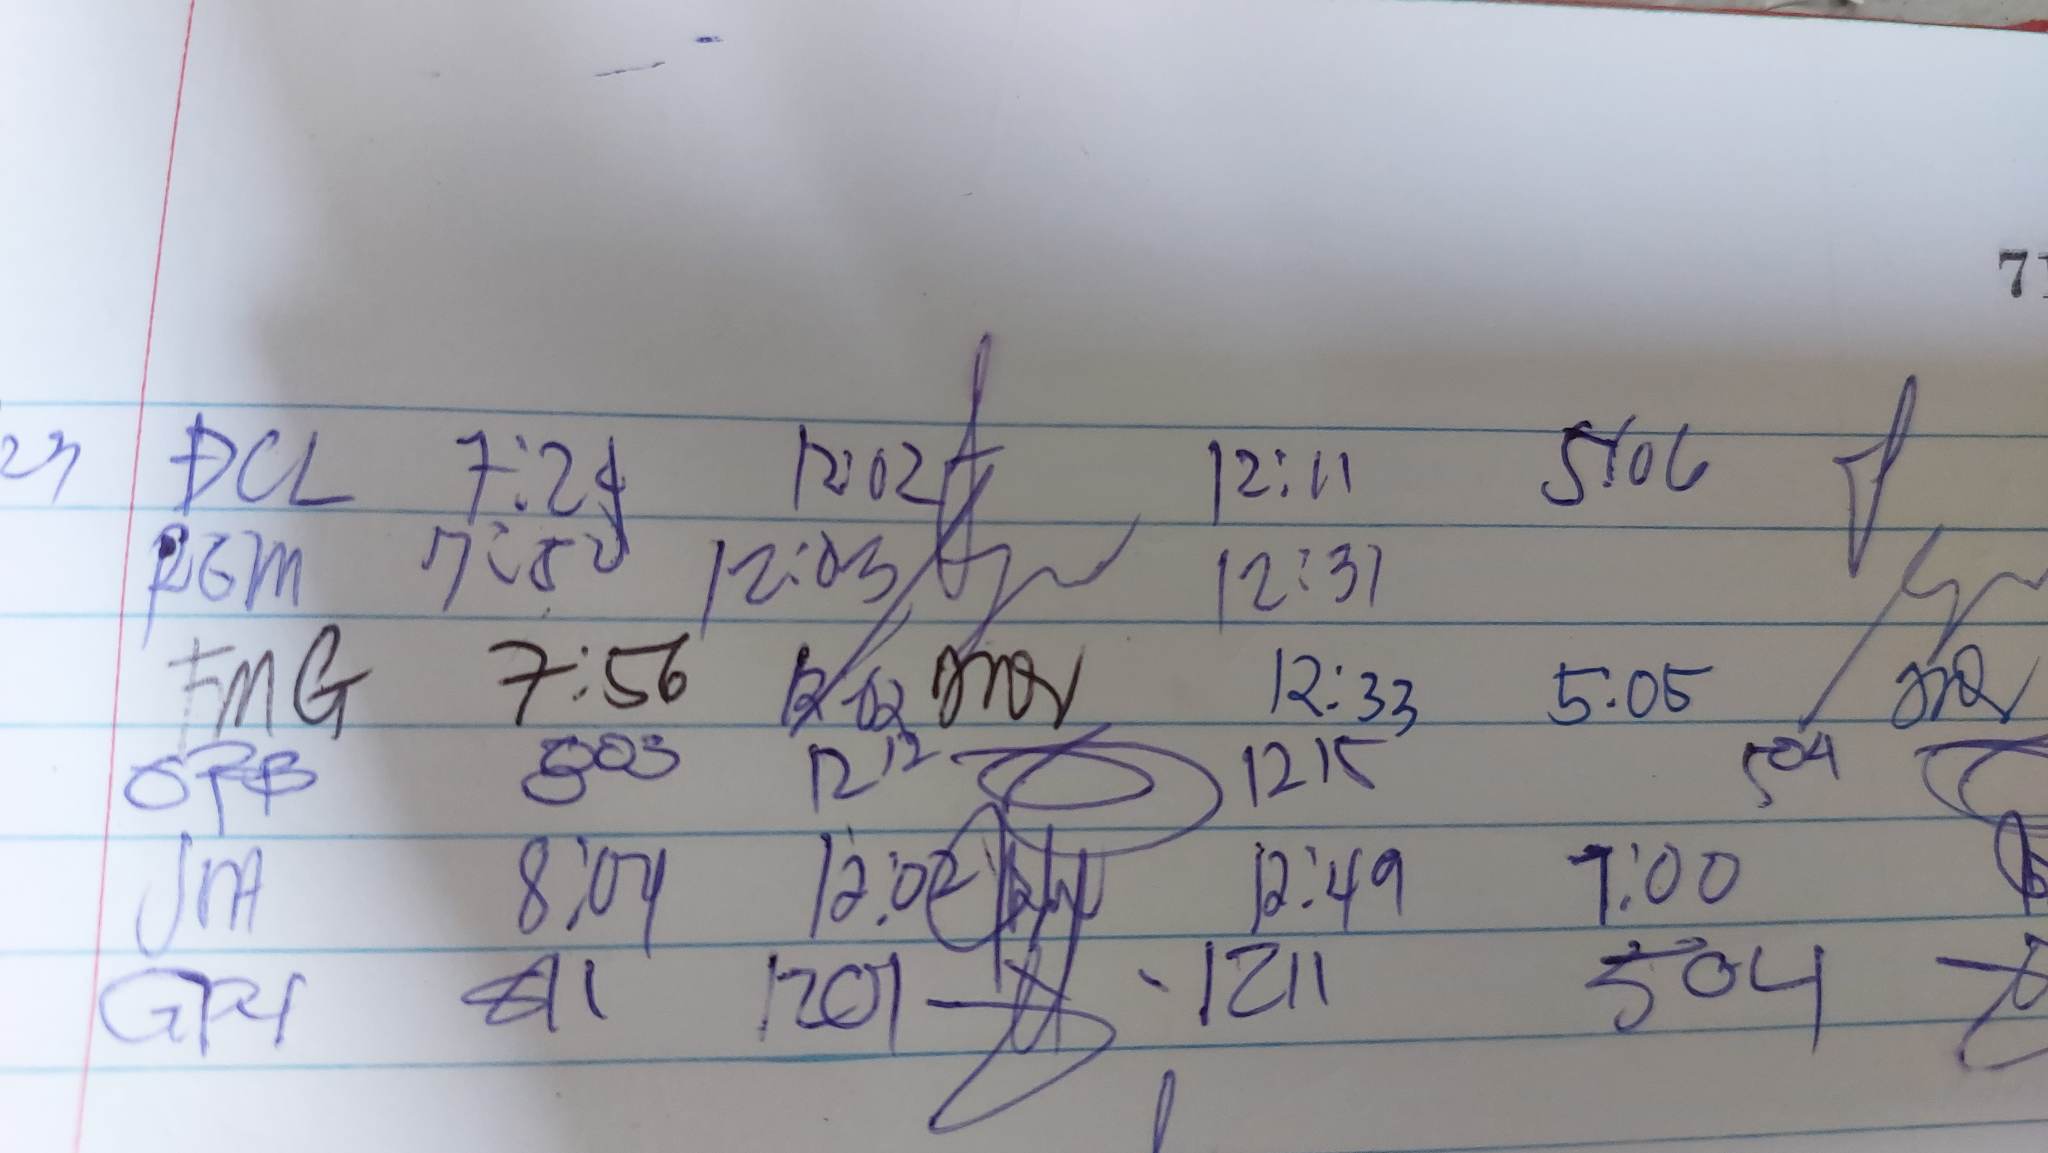 71
23 DCL 7:24 12:02 12:11 5:06
RGM 7:50 12:03 12:31
FMG 7:56 12:02 12:33 5:05
OPB 803 12 12 12 15 504
JMA 8:04 12:02 12:49 7:00
811 1207 1211 504